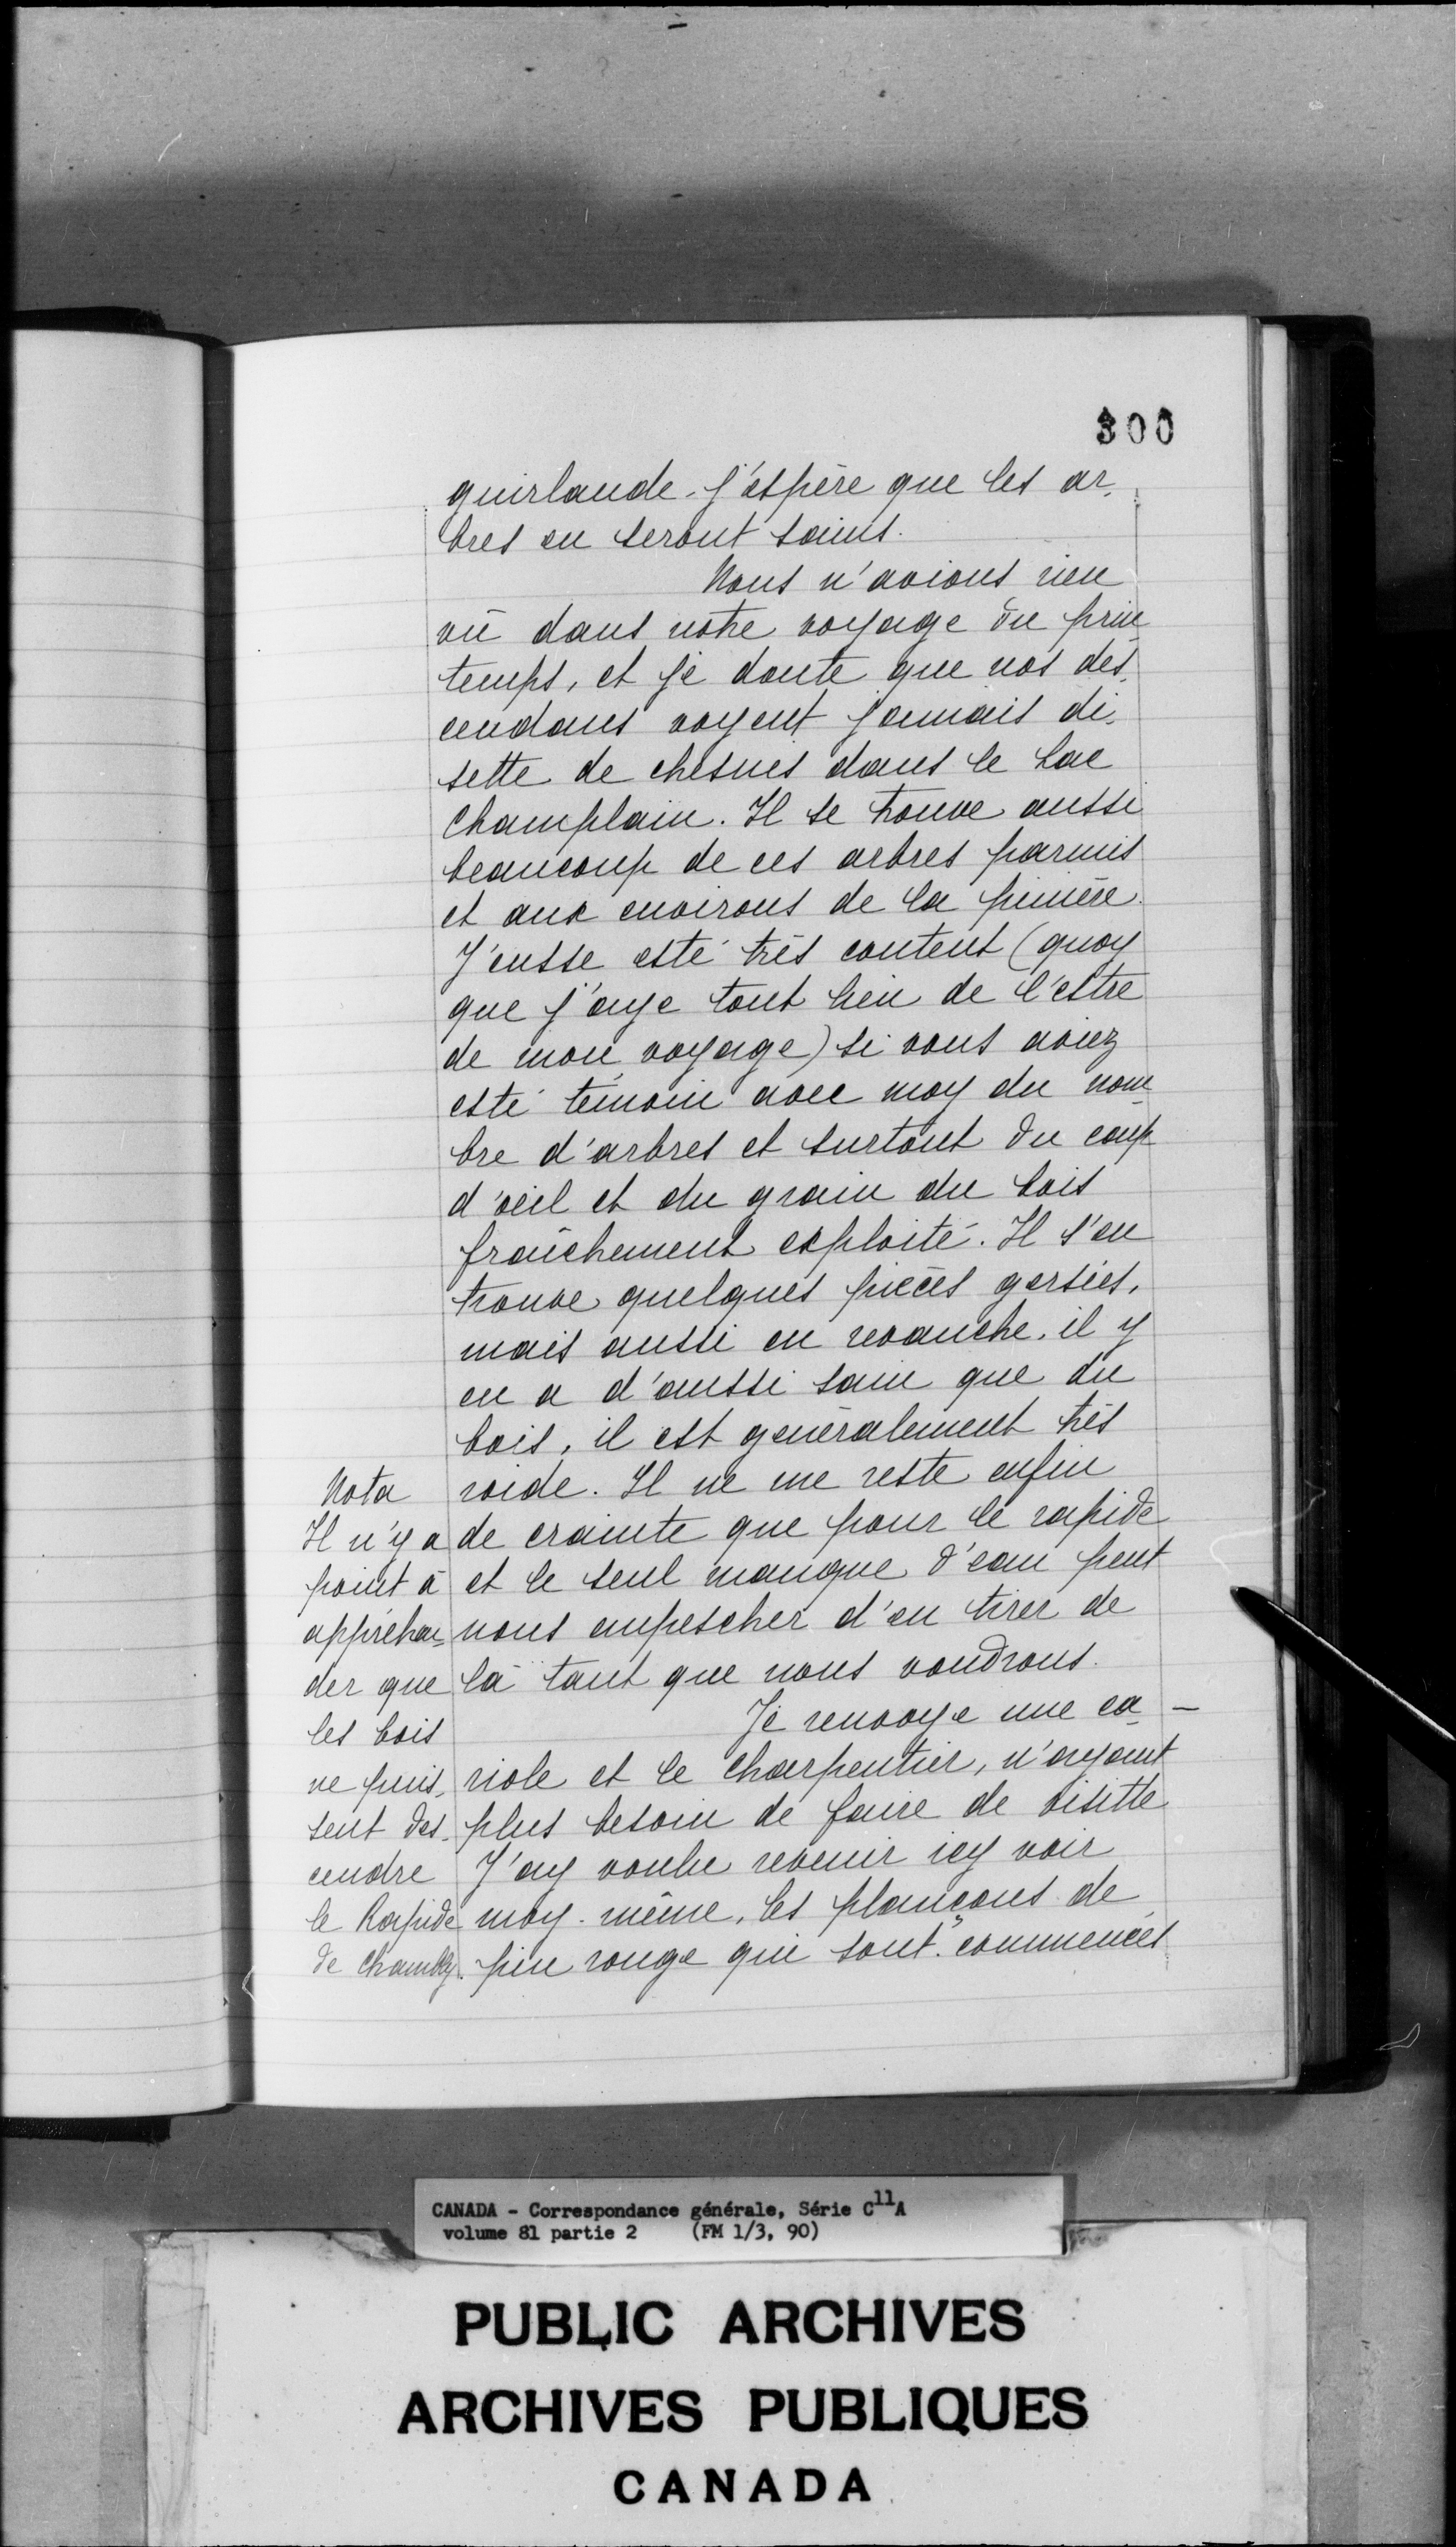 300
guirlande. J'espère que les ar-
bres en seront sains.
Nous n'avions rien
vû dans notre voyage du prin-
temps, et je doute que nos des-
cendans voyent jamais di-
sette de chesnes dans le Lac
Champlain. Il se trouve aussi
beaucoup de ces arbres parmis
et aux environs de la pinière.
J'eusse esté très content (quoy
que j'aye tout lieu de l'estre
de mon voyage) si vous aviez
esté témoin avec moy du nom-
bre d'arbres et surtout du coup
d'oeil et du grain du bois
fraîchement exploité. Il s'en
trouve quelques pièces gersées,
mais aussi en revanche, il y
en a d'aussi sain que du
bois, il est généralement très
roide. Il ne me reste enfin
de crainte que pour le rapide
et le seul manque d'eau peut
nous empescher d'en tirer de
là tant que nous voudrons.
Je renvoye une ca-
riole et le charpentier, n'ayant
plus besoin de faire de visitte
J'ay voulu revenir icy voir
moy-même, les plançons de
pin rouge qui sont commencés
Nota
Il n'y a
point à
appréhen-
der que
les bois
ne puis-
sent des-
cendre
le Rapide
de Chambly.
CANADA - Correspondance générale, Série C11A
volume 81 partie 2 (FM 1/3, 90)
PUBLIC ARCHIVES
ARCHIVES PUBLIQUES
CANADA